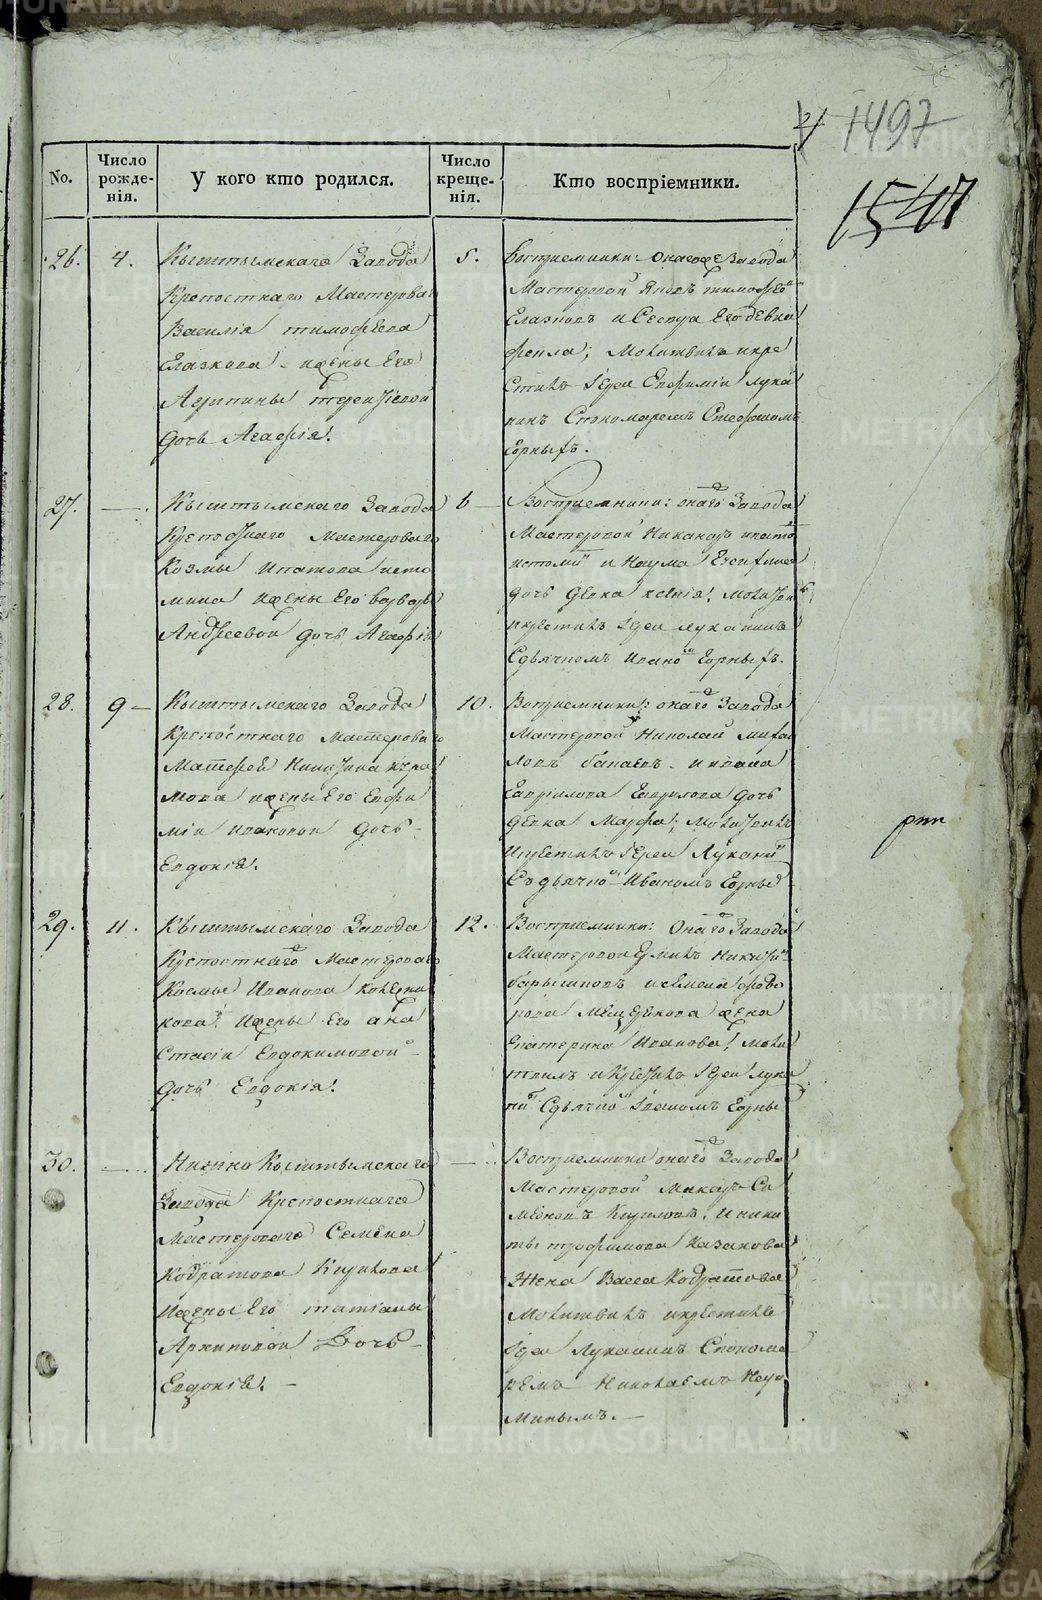 1497
1547
No.
Число рожденія.
У кого кто родился.
Число крещенія.
Кто воспріемники.
26.
4.
Кыштымскаго Завода
Крепостнаго Мастероваго
Василія тимофѣева
Глазкова и жены Его
Агрипины терентіевой
Дочь Агафія.
5.
Воспріемники: онагоже Завода
Мастеровой Яковъ тимофѣе
Глазковъ и Сестра Его девка
фекла; Молитвилъ и кре
Стилъ Іерей Евфимій лука
нинъ Спономаремъ Стефаномъ
Горныхъ.
27.
Кыштымскаго Завода
Крепостнаго Мастероваго
Козмы Ипатова исто
мина и жены Его варвары
Андреевой дочь Агафія
6
Воспріемники: онаго Завода
Мастеровой Никаноръ ипатов
истоми и Наума
дочь девка ксенія. Молитвил
и крестилъ Іерей лука нинъ
Сдьячкомъ Иваном Горныхъ.
28.
9
Кыштымскаго Завода
Крепостнаго Мастероваго
Матфея Никитина
мова и жены Его Евфи
міи Ивановой дочь
Евдокія.
10.
Вопріемники: онаго Завода
Мастеровой Николай михаи
ловъ бапаевъ и ивана
Гаврилова Гаврилова дочь
девка Марфа; Молитвилъ
и крестилъ Іерей Луканин
Съ дьячко Иваномъ Горны
29.
11.
Кыштымскаго Завода
Крепостнаго Мастероваго
Космы Иванова
кова и жены Его ана
стасіи Евдокимовой
дочь Евдокія.
12.
Воспріемники: Онаго Завода
Мастеровой Ермилъ Никити
барышковъ и Семена федо
рова Мещерекова жена
Екатерина Иванова; моли
твилъ и крестилъ Іерей лука
ни Сдьячко Іваномъ Горны
30.
Нижно Кыштымскаго
Завода Крепостнаго
Мастероваго Семена
Кодратова Кирилова
и жены Его татіаны
Архиповой Дочь
Евдокія.
Воспріемники онаго Завода
Мастеровой Макаръ Си
меновъ Кириловъ. И ники
ты трофимова Казакова
Жена Васса Кодратова
Молитвилъ и крестилъ
Іерей Луканинъ Спонома
ремъ Николаемъ
Миныхъ.
METRIKI.GASO-URAL.RU